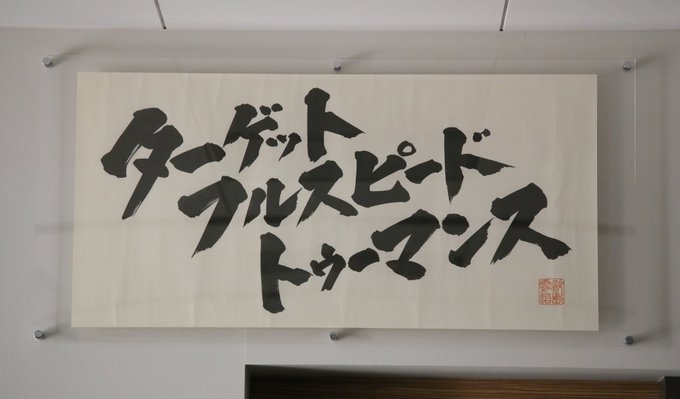 ターゲット
フルスピード
トゥーマンス